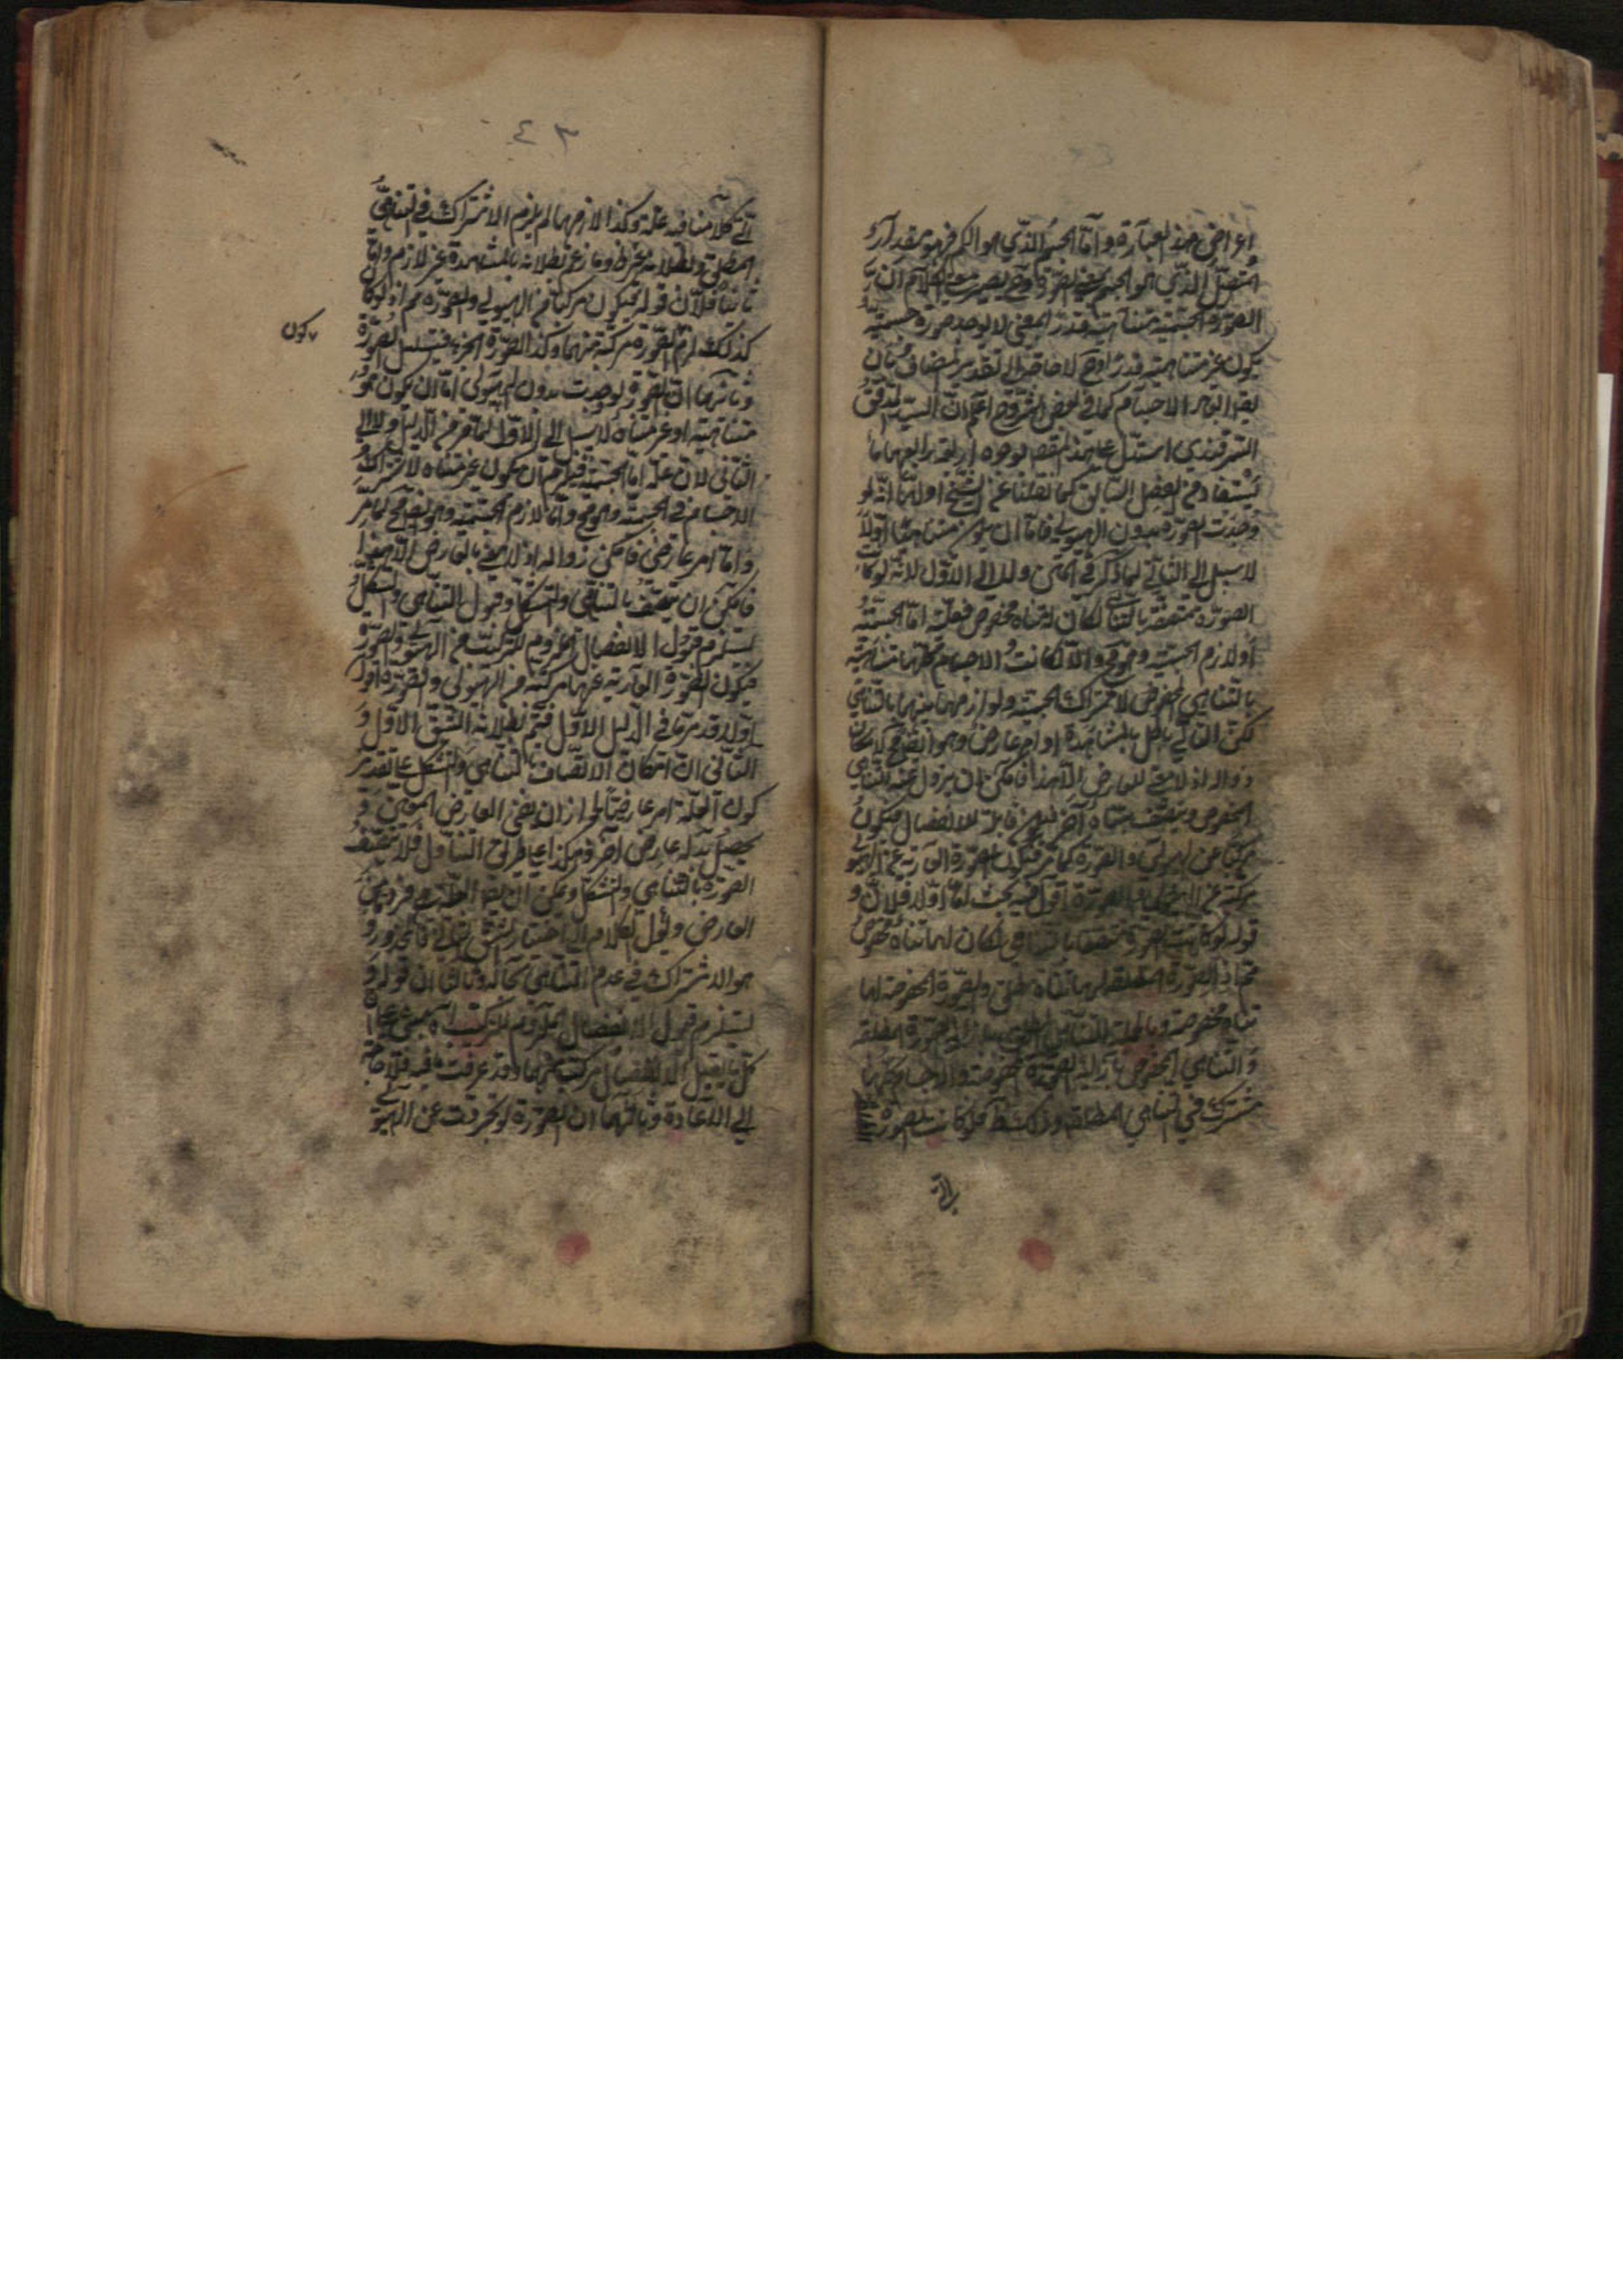 اعراض هذه العبارة واما الجسم الذي هو الكم فهو مقدار
المتصل الذي هو الجسم بمعنى الصورة وح يصير معنى الكلام ان
الصورة الجسمية متناهية قدر المعنى لا يوجد صورة جسمية
يكون غير متناهية قدر اوح لا حاجة الى تقدير المضاف بان
يقدر ابعاد الاجسام كما في بعض الشروح اعلم ان السيد المدقق
السمرقندي استدل على هذا المقصد بوجوه اربعة رابعها ما
يستفاد من الفصل السابق كما نقلنا عن الشيخ اولها انه لو
وجدت الصورة بدون الهيولى فاما ان يكون متناهية اولا
لا سبيل الى الثاني لما ذكر في المتن ولا الى الاول لانه لو كانت
الصورة متصفة بالتناهي لكان له تناه مخصوص فعلته اما الجسمية
او لازم الجسمية وهو مح والا لكانت الاجسام كلها متناهية
بالتناهي المخصوص لاشتراك الجسمية ولوازمها بينها بالتناهي
لكن التالي باطل بالمشاهدة او امر عارض وهو ايضا مح لامكان
زواله اذ لا معنى للعارض الا هذا فامكن ان يزول عنه التناهي
المخصوص ويتصف بتناه آخر فهي قابلة للانفصال فيكون
مركبا عن الهيولى والصورة كما مر فيكون الصورة العارية عن الهيولى
مركبة عن الهيولى والصورة اقول فيه بحث اما اولا فلان
قوله لو كانت الصورة متصفة بالتناهي لكان لها تناه مخصوص
مح اذ الصورة المطلقة لها تناه مطلق والصورة المخصوصة لها
تناه مخصوص وبالجملة التناهي المطلق بازاء الصورة المطلقة
والتناهي المخصوص بازاء الصورة المخصوصة والاجسام كلها
مشترك في التناهي المطلق وذلك ظ فلو كانت الصورة
الى
٤٣
كلامنا فيه علة وكذا لازمها لم يلزم الاشتراك في التناهي
المطلق وبطلانه غير ظ وما زعم بطلانه بالمشاهدة غير لازم واما
ثانيا فلان قوله فيكون مركبا من الهيولى والصورة مح اذ لو كان
كذلك لزم الصورة مركبة منهما وكذا الصورة الجزء فيتسلسل الصورة
يكون
وثانيها ان الصورة لو وجدت بدون الهيولى اما ان يكون
متناهية او غير متناه لا سبيل الى الاول لما مر في الدليل ولا الى
الثاني لان علته اما الجسمية فيلزم ان يكون غير متناه لاشتراك
الاجسام في الجسمية وهو مح واما لازم الجسمية وهو ايضا مح لما مر
واما امر عارض فامكن زواله اذ لا معنى بالعارض الا هذا
فامكن ان يتصف بالتناهي والتشكل وقبول التناهي والتشكل
يستلزم قبول الانفصال الملزوم للتركب من الهيولى والصورة
فيكون الصورة العارية عنها مركبة من الهيولى والصورة اقول
اولا قد مر ما في الدليل الاول فتم بطلانه الشق الاول و
الثاني ان امكان الاتصاف بالتناهي والتشكل على تقدير
كون العلة امر عارضيا لجواز ان يفنى العارض المعين و
يحصل بدله عارض آخر وهكذا على طريق التبادل فلا يتصف
الصورة بالتناهي والتشكل ويمكن ان يقال العلة هي فرد من
العارض ويؤل الكلام الى اختيار الشق الثاني فالمحذور و
هو الاشتراك في عدم التناهي بحاله وثالثا ان قوله
يستلزم قبول الانفصال الملزوم للتركب آه مبني على ان
كل ما يقبل الانفصال مركب منهما وقد عرفت ما فيه فلا حاجة
الى الاعادة وثالثها ان الصورة لو تجردت عن الهيو